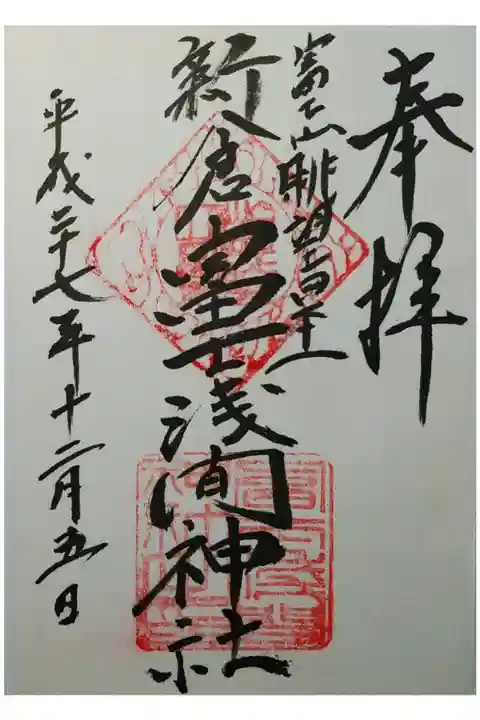 奉拝
富士山眺望日本一
新倉富士浅間神社
平成二十七年十二月五日